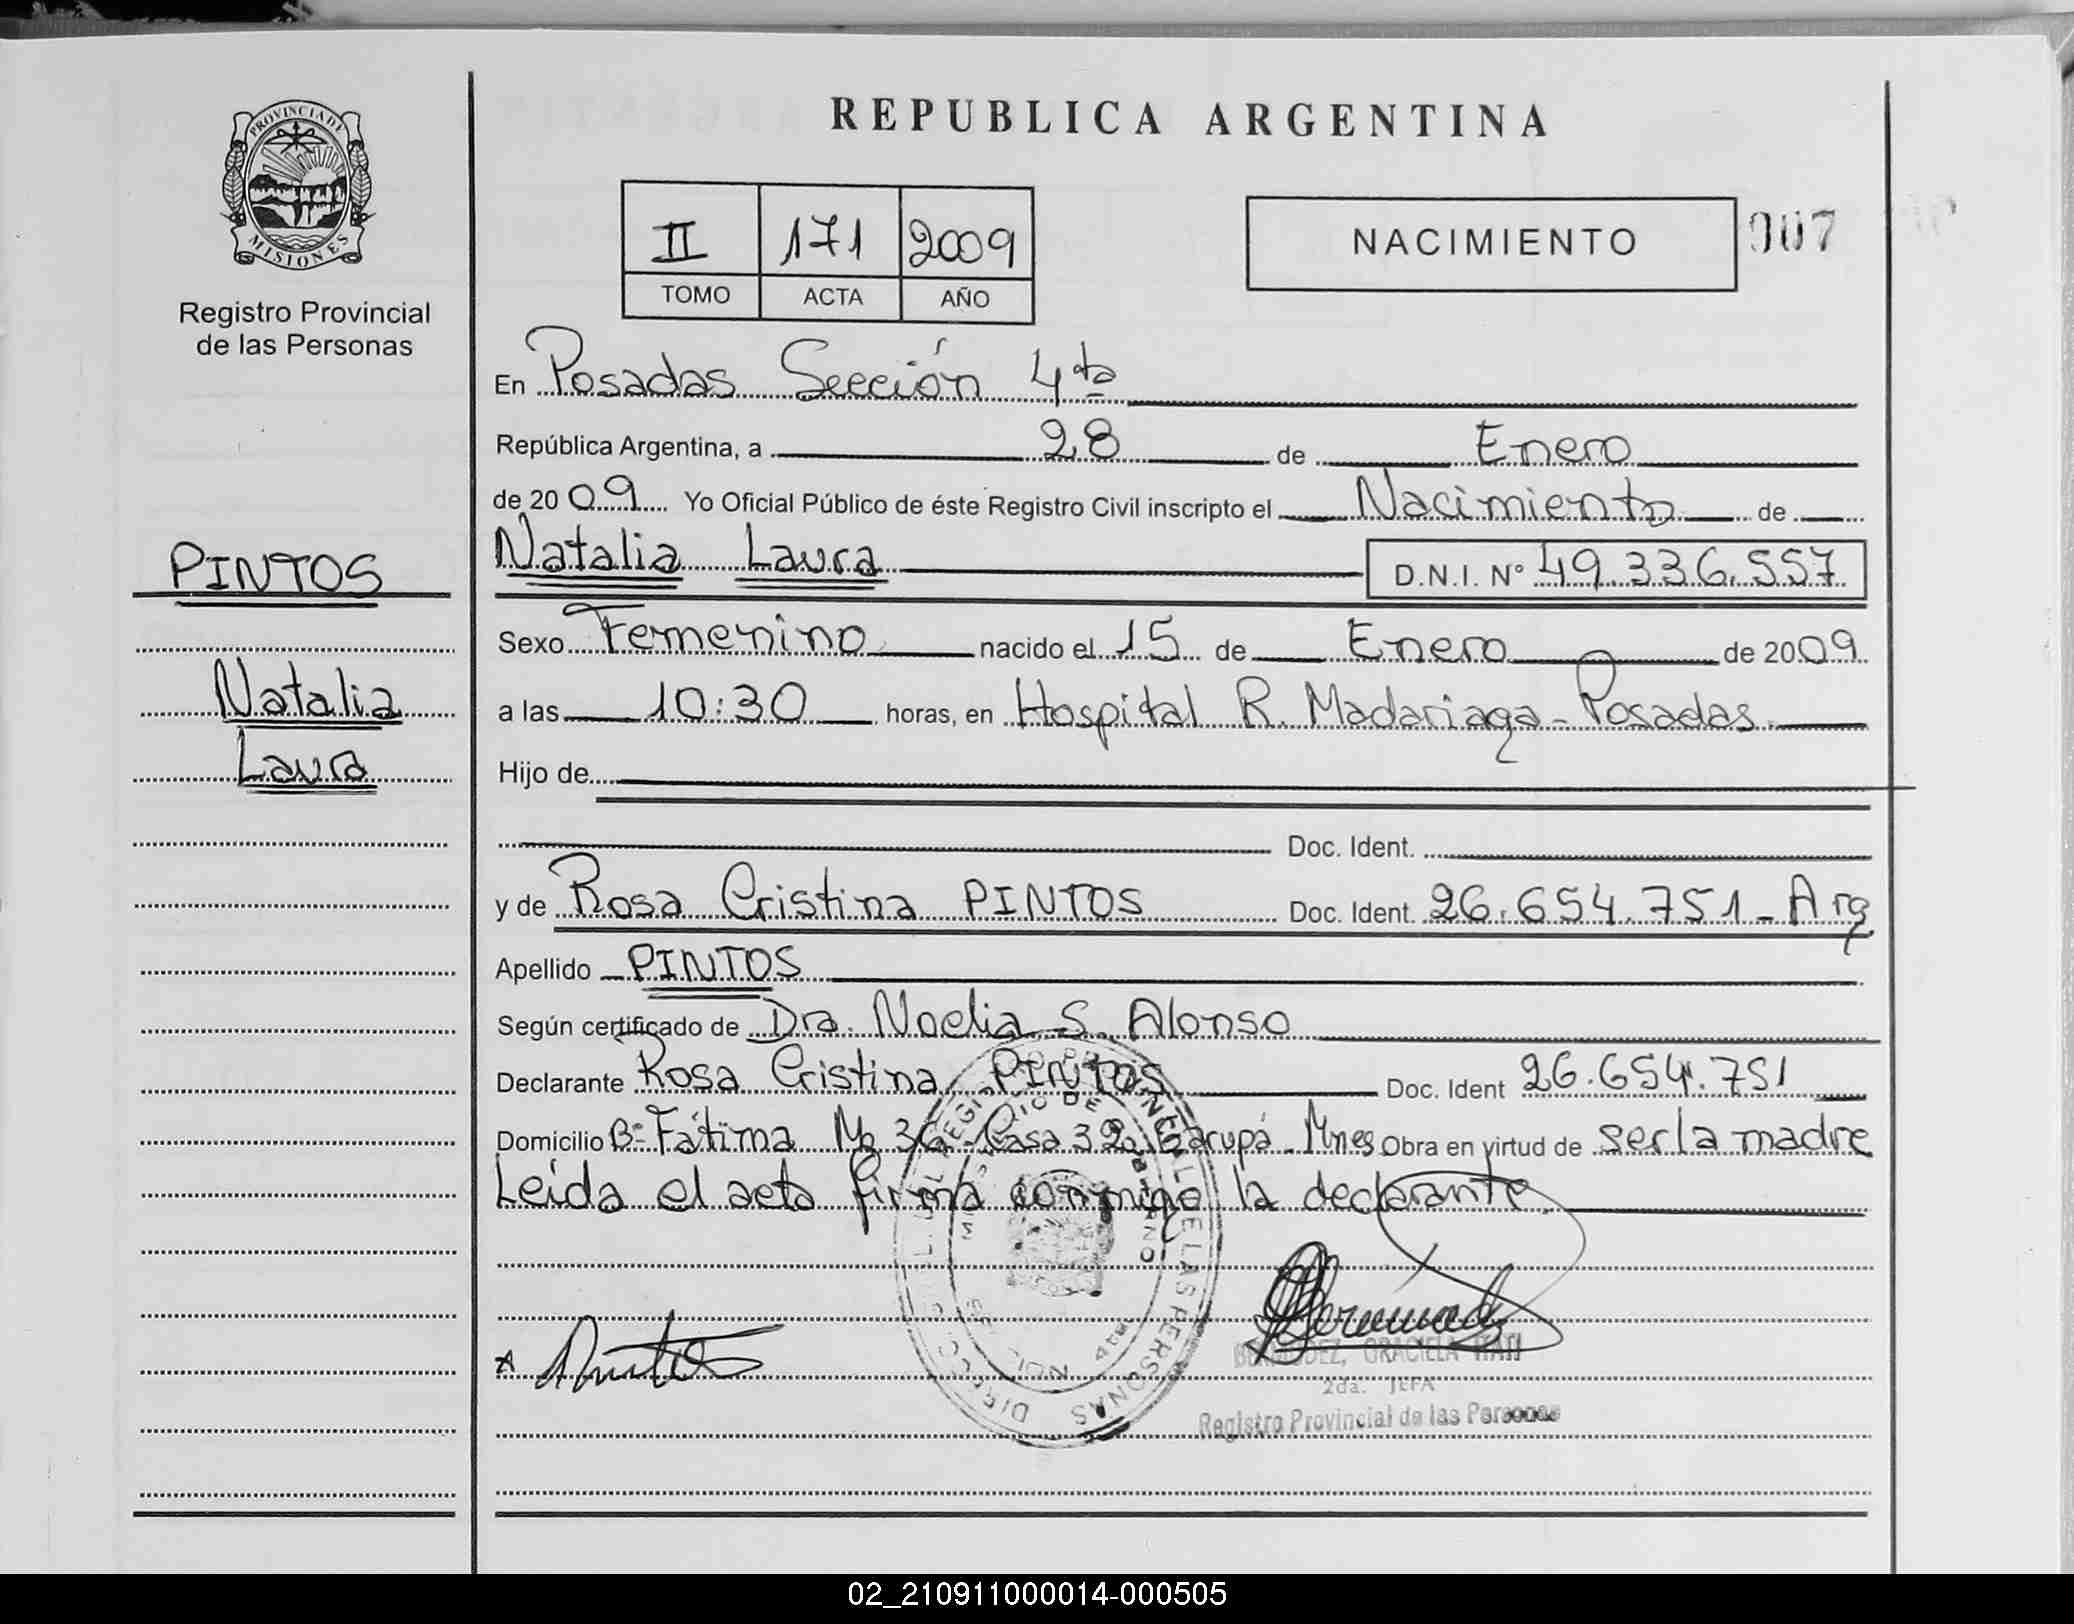 PROVINCIA DE
MISIONES
Registro Provincial
de las Personas
REPUBLICA ARGENTINA
II 171 2009
TOMO ACTA AÑO
NACIMIENTO
007
En Posadas Sección 4ta
República Argentina, a 28 de Enero
de 2009 Yo Oficial Público de éste Registro Civil inscripto el Nacimiento de
Natalia Laura D.N.I. N° 49.336.557
PINTOS
Natalia
Laura
Sexo Femenino nacido el 15 de Enero de 2009
a las 10:30 horas, en Hospital R. Madariaga - Posadas
Hijo de
Doc. Ident.
y de Rosa Cristina PINTOS Doc. Ident. 26.654.751 - Arg
Apellido PINTOS
Según certificado de Dra. Noelia S. Alonso
Declarante Rosa Cristina PINTOS Doc. Ident 26.654.751
Domicilio B° Fátima Mz 36 Casa 32 Garupá - Mnes Obra en virtud de ser la madre
Leida el acta firma conmigo la declarante
BERMUDEZ, GRACIELA ITATI
2da. JEFA
Registro Provincial de las Personas
02_210911000014-000505